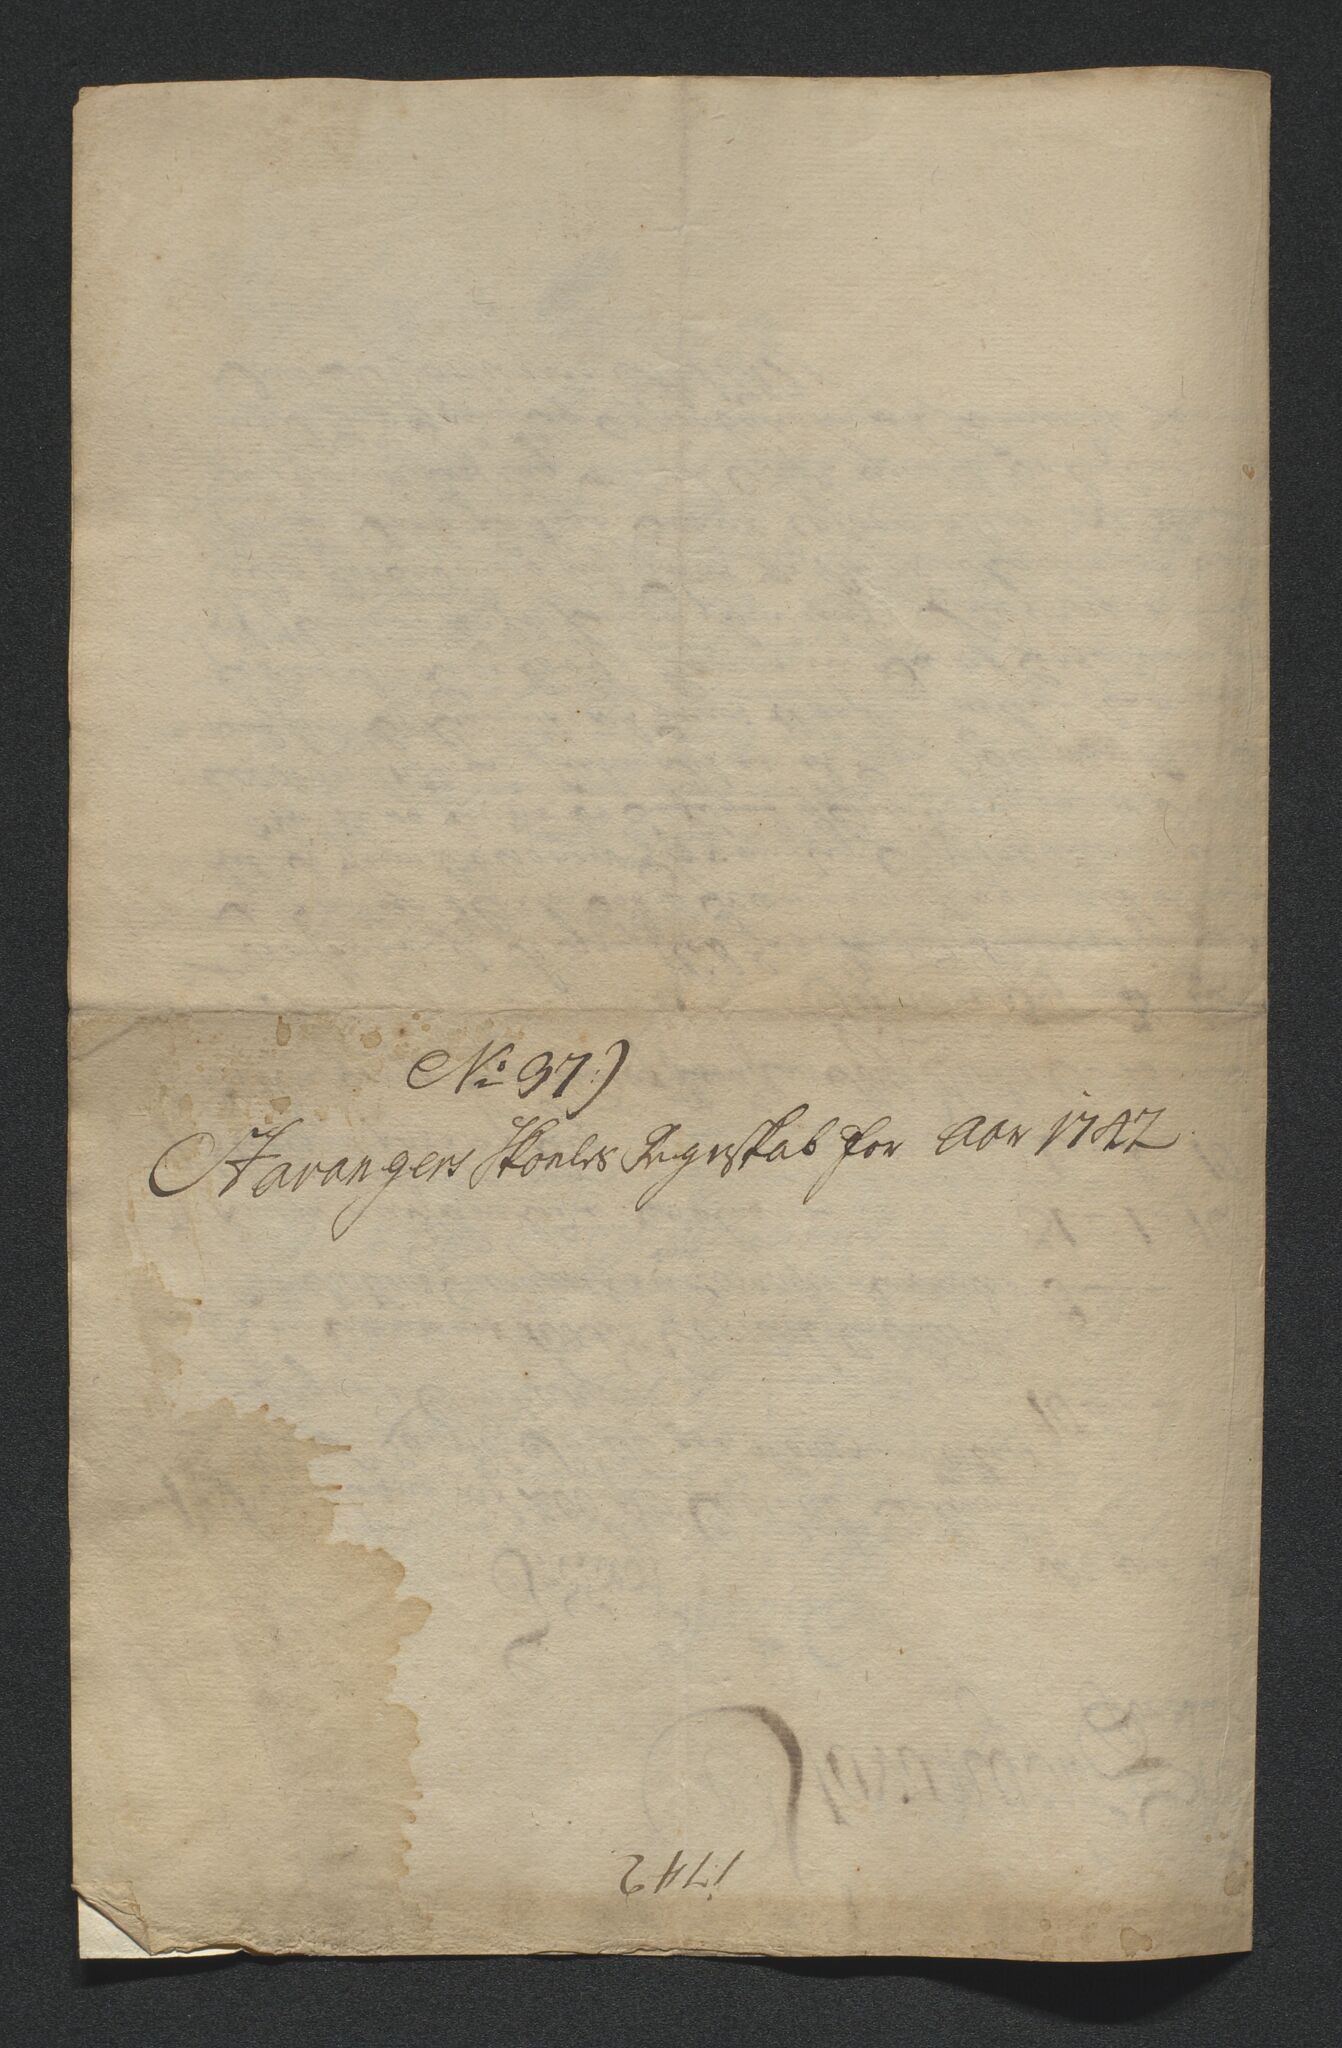 No 37:)
Havangers Skoeles Regnskab for Aar 1742
1742